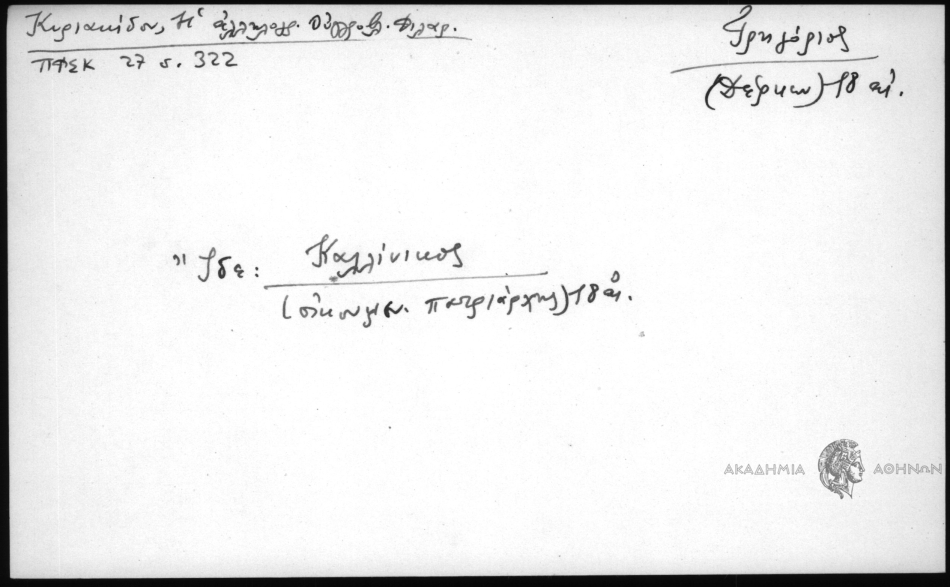 Κυριακίδου, Ἡ ἀλληλογρ. Φιλαρ.
ΠΦΣΚ 27 σ. 322
Γρηγόριος
(Δέρκων) 18 αἰ.
Ἴδε: Καλλίνικος
(οἰκουμεν. πατριάρχης) 18 αἰ.
ΑΚΑΔΗΜΙΑ ΑΘΗΝΩΝ